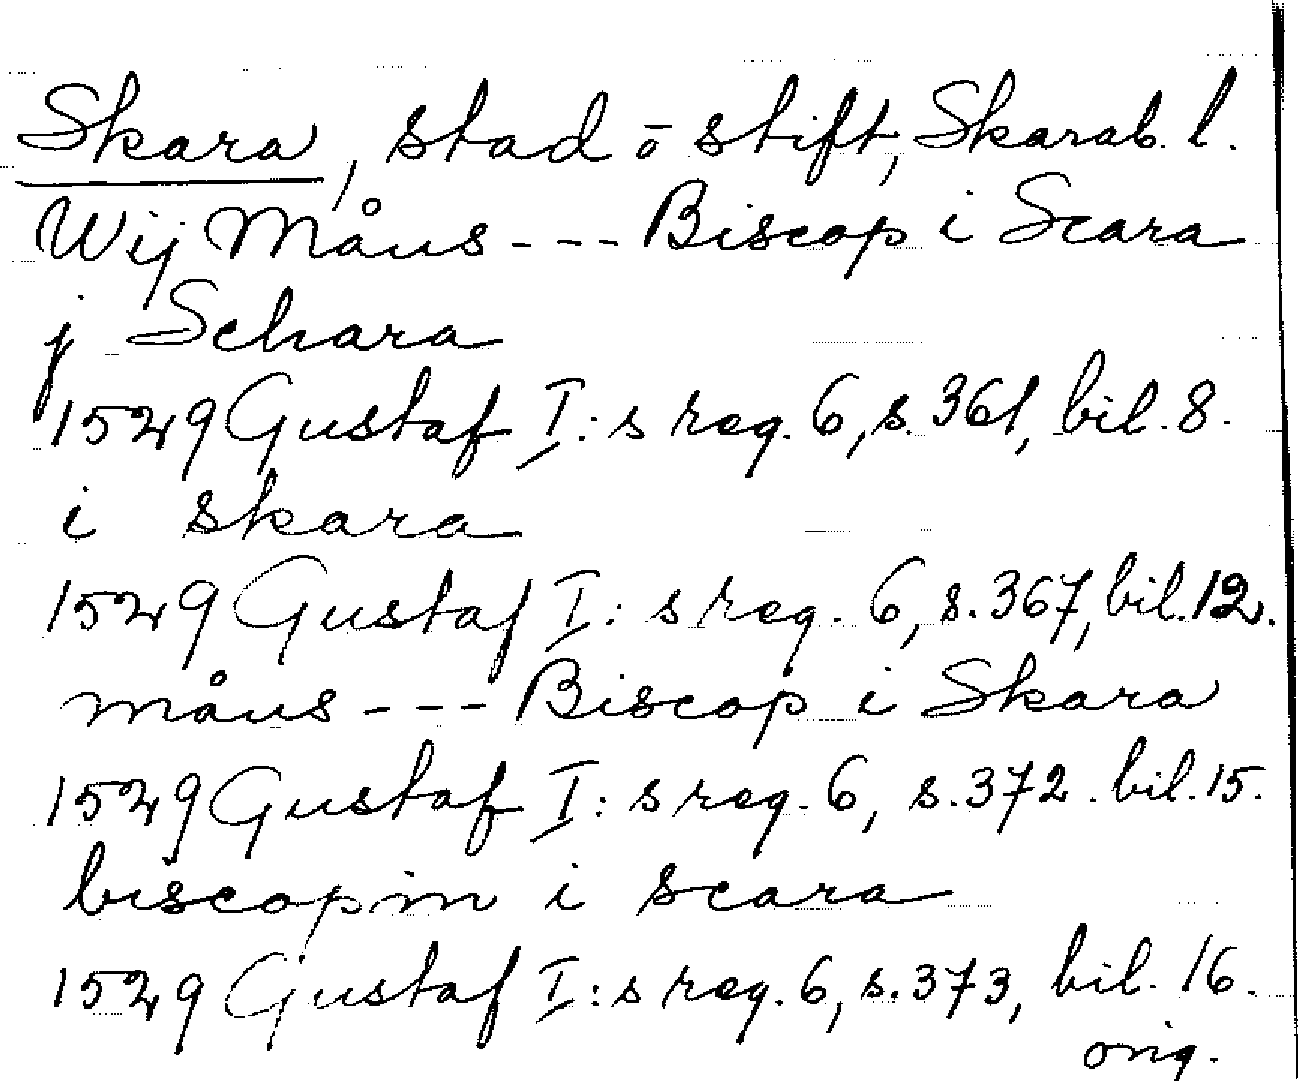 Skara, stad ō stift, Skarab. l.
Wij Måns --- Biscop i Scara
j Schara
1529 Gustaf I:s reg. 6, s. 361, bil. 8.
i skara
1529 Gustaf I:s reg. 6, s. 367, bil. 12.
måns --- Biscop i Skara
1529 Gustaf I:s reg. 6, s. 372. bil. 15.
biscopin i scara
1529 Gustaf I:s reg. 6, s. 373, bil. 16.
orig.